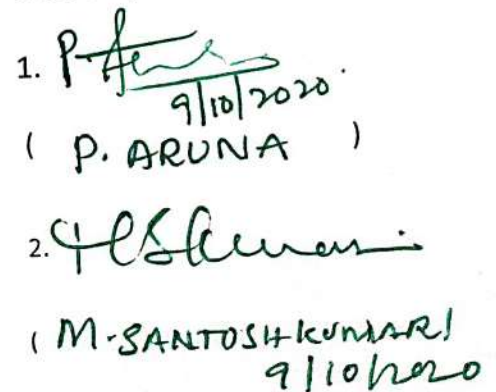 1. P. Aru
9/10/2020.
( P. ARUNA )
2.
( M. SANTOSH KUMARI
9/10/2020